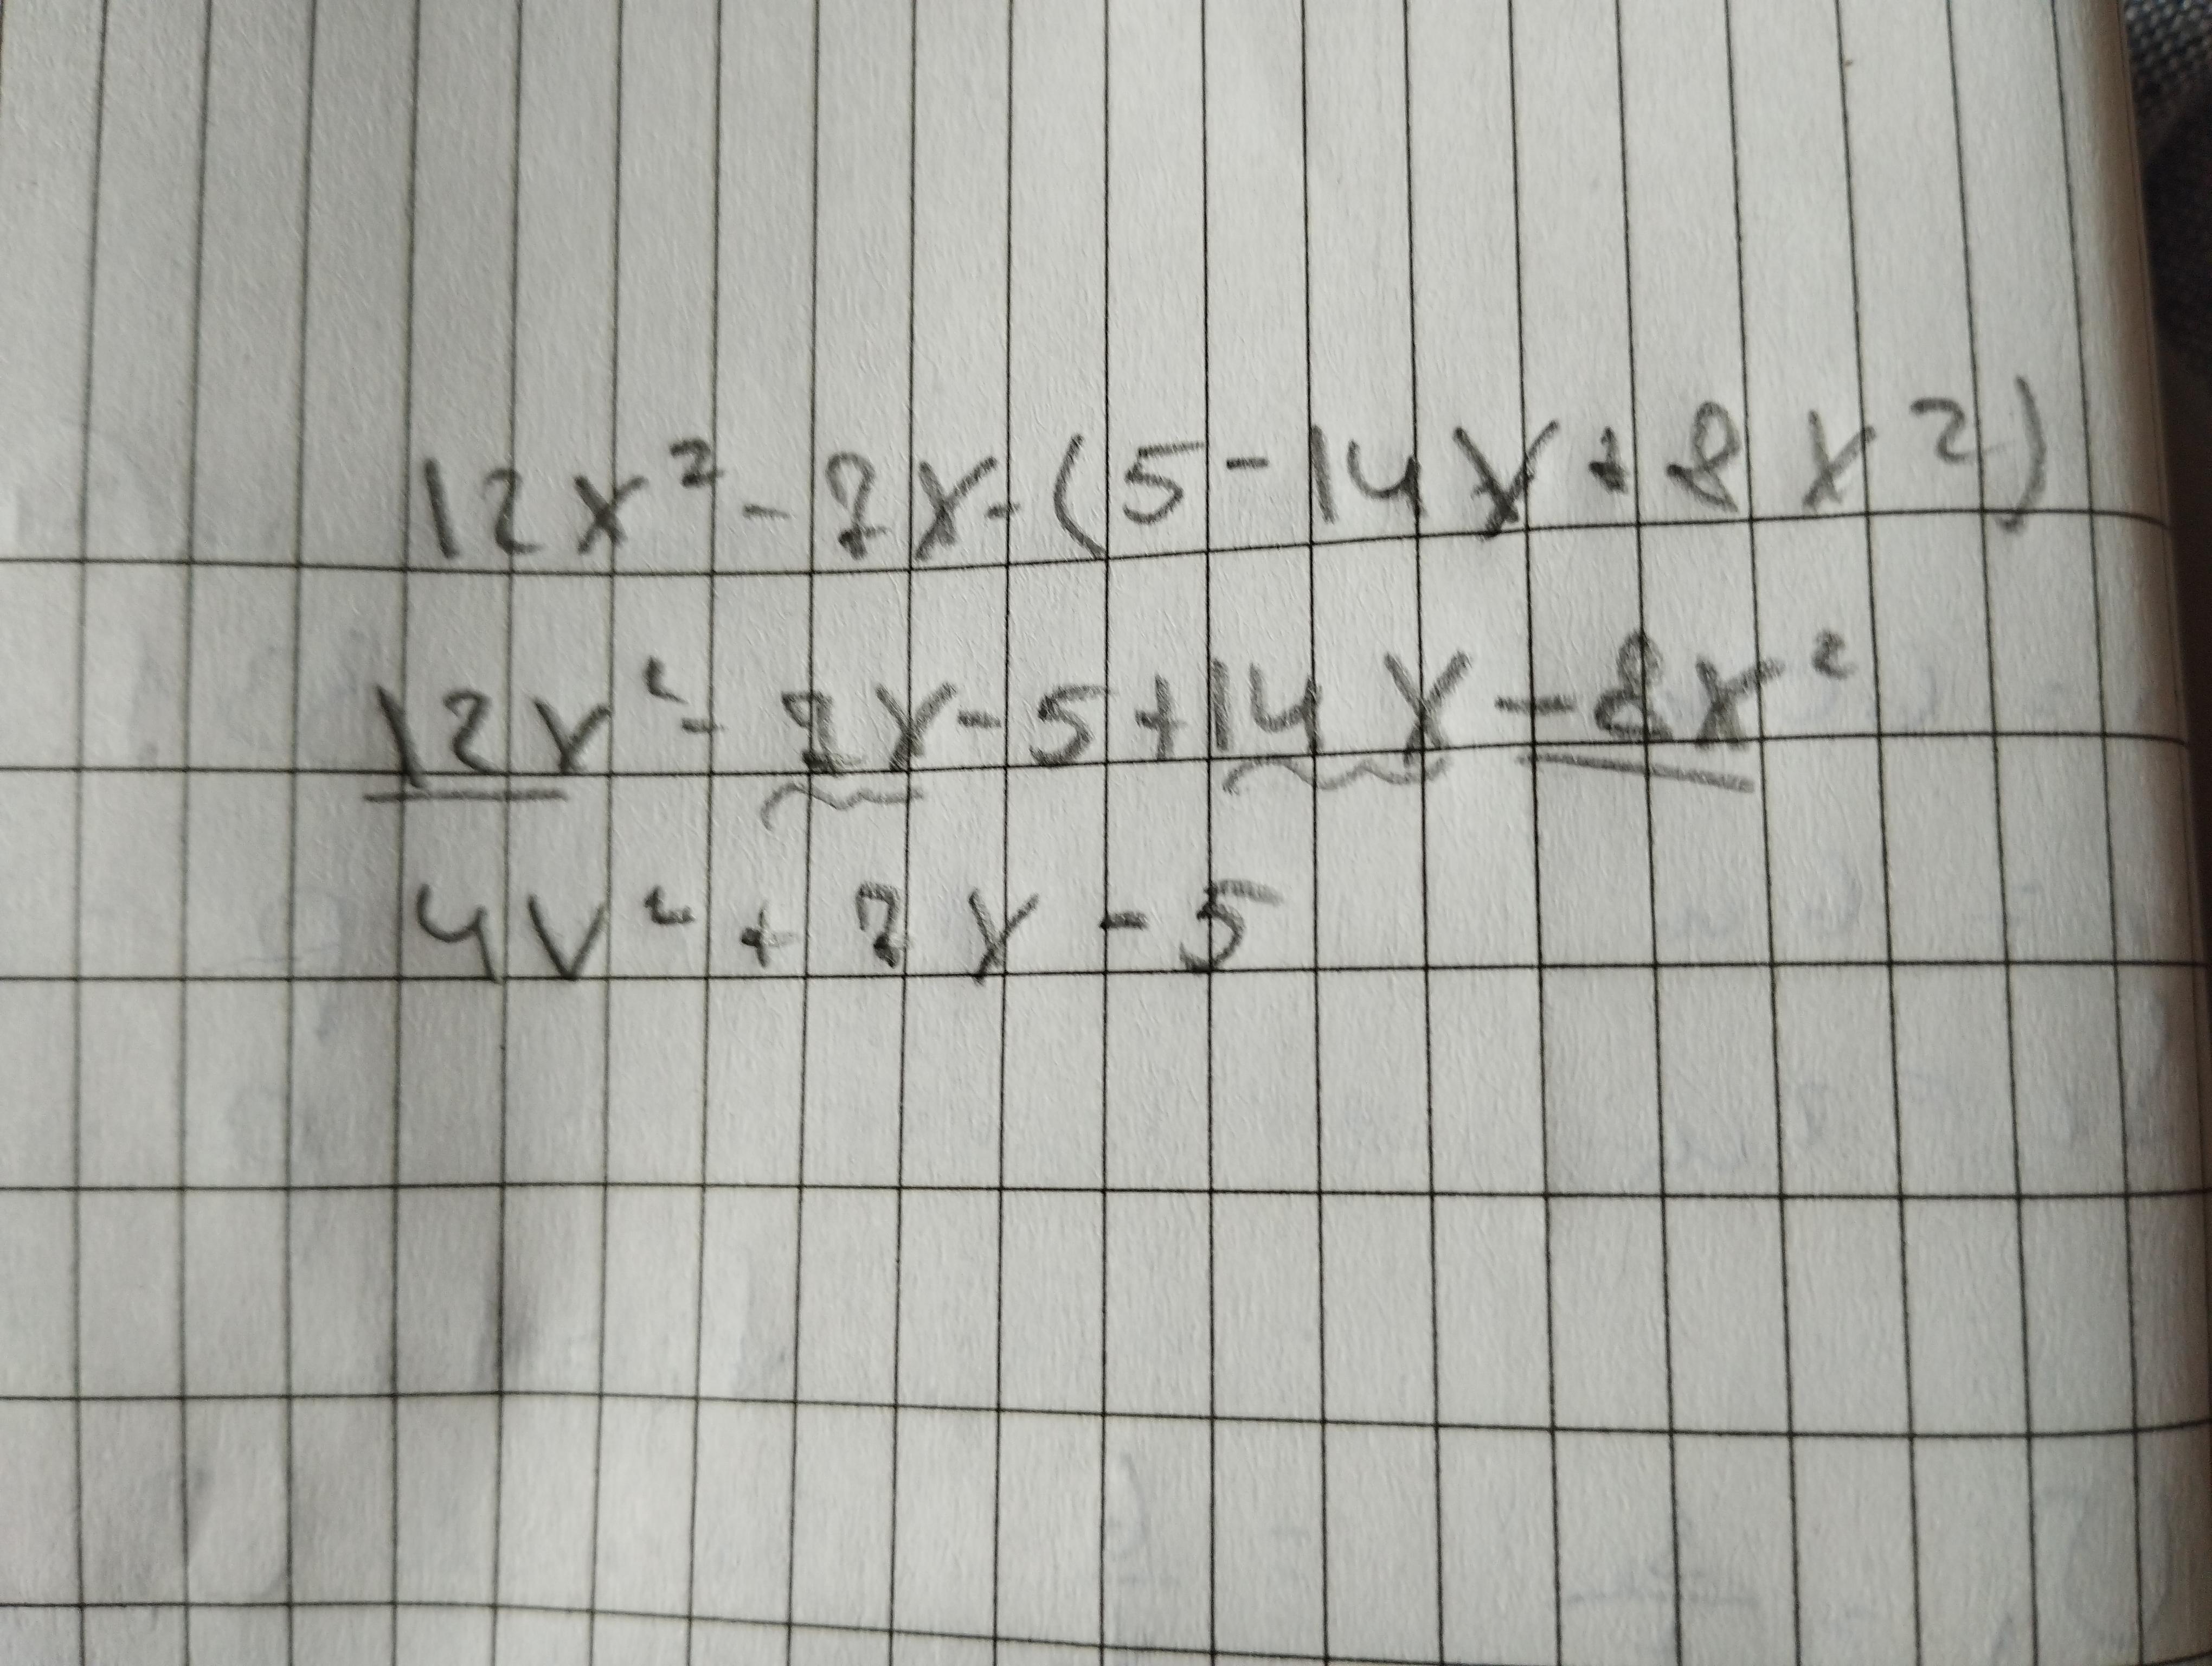 12x² - 7x - (5 - 14x + 8x²)
12x² - 7x - 5 + 14x - 8x²
4x² + 7x - 5